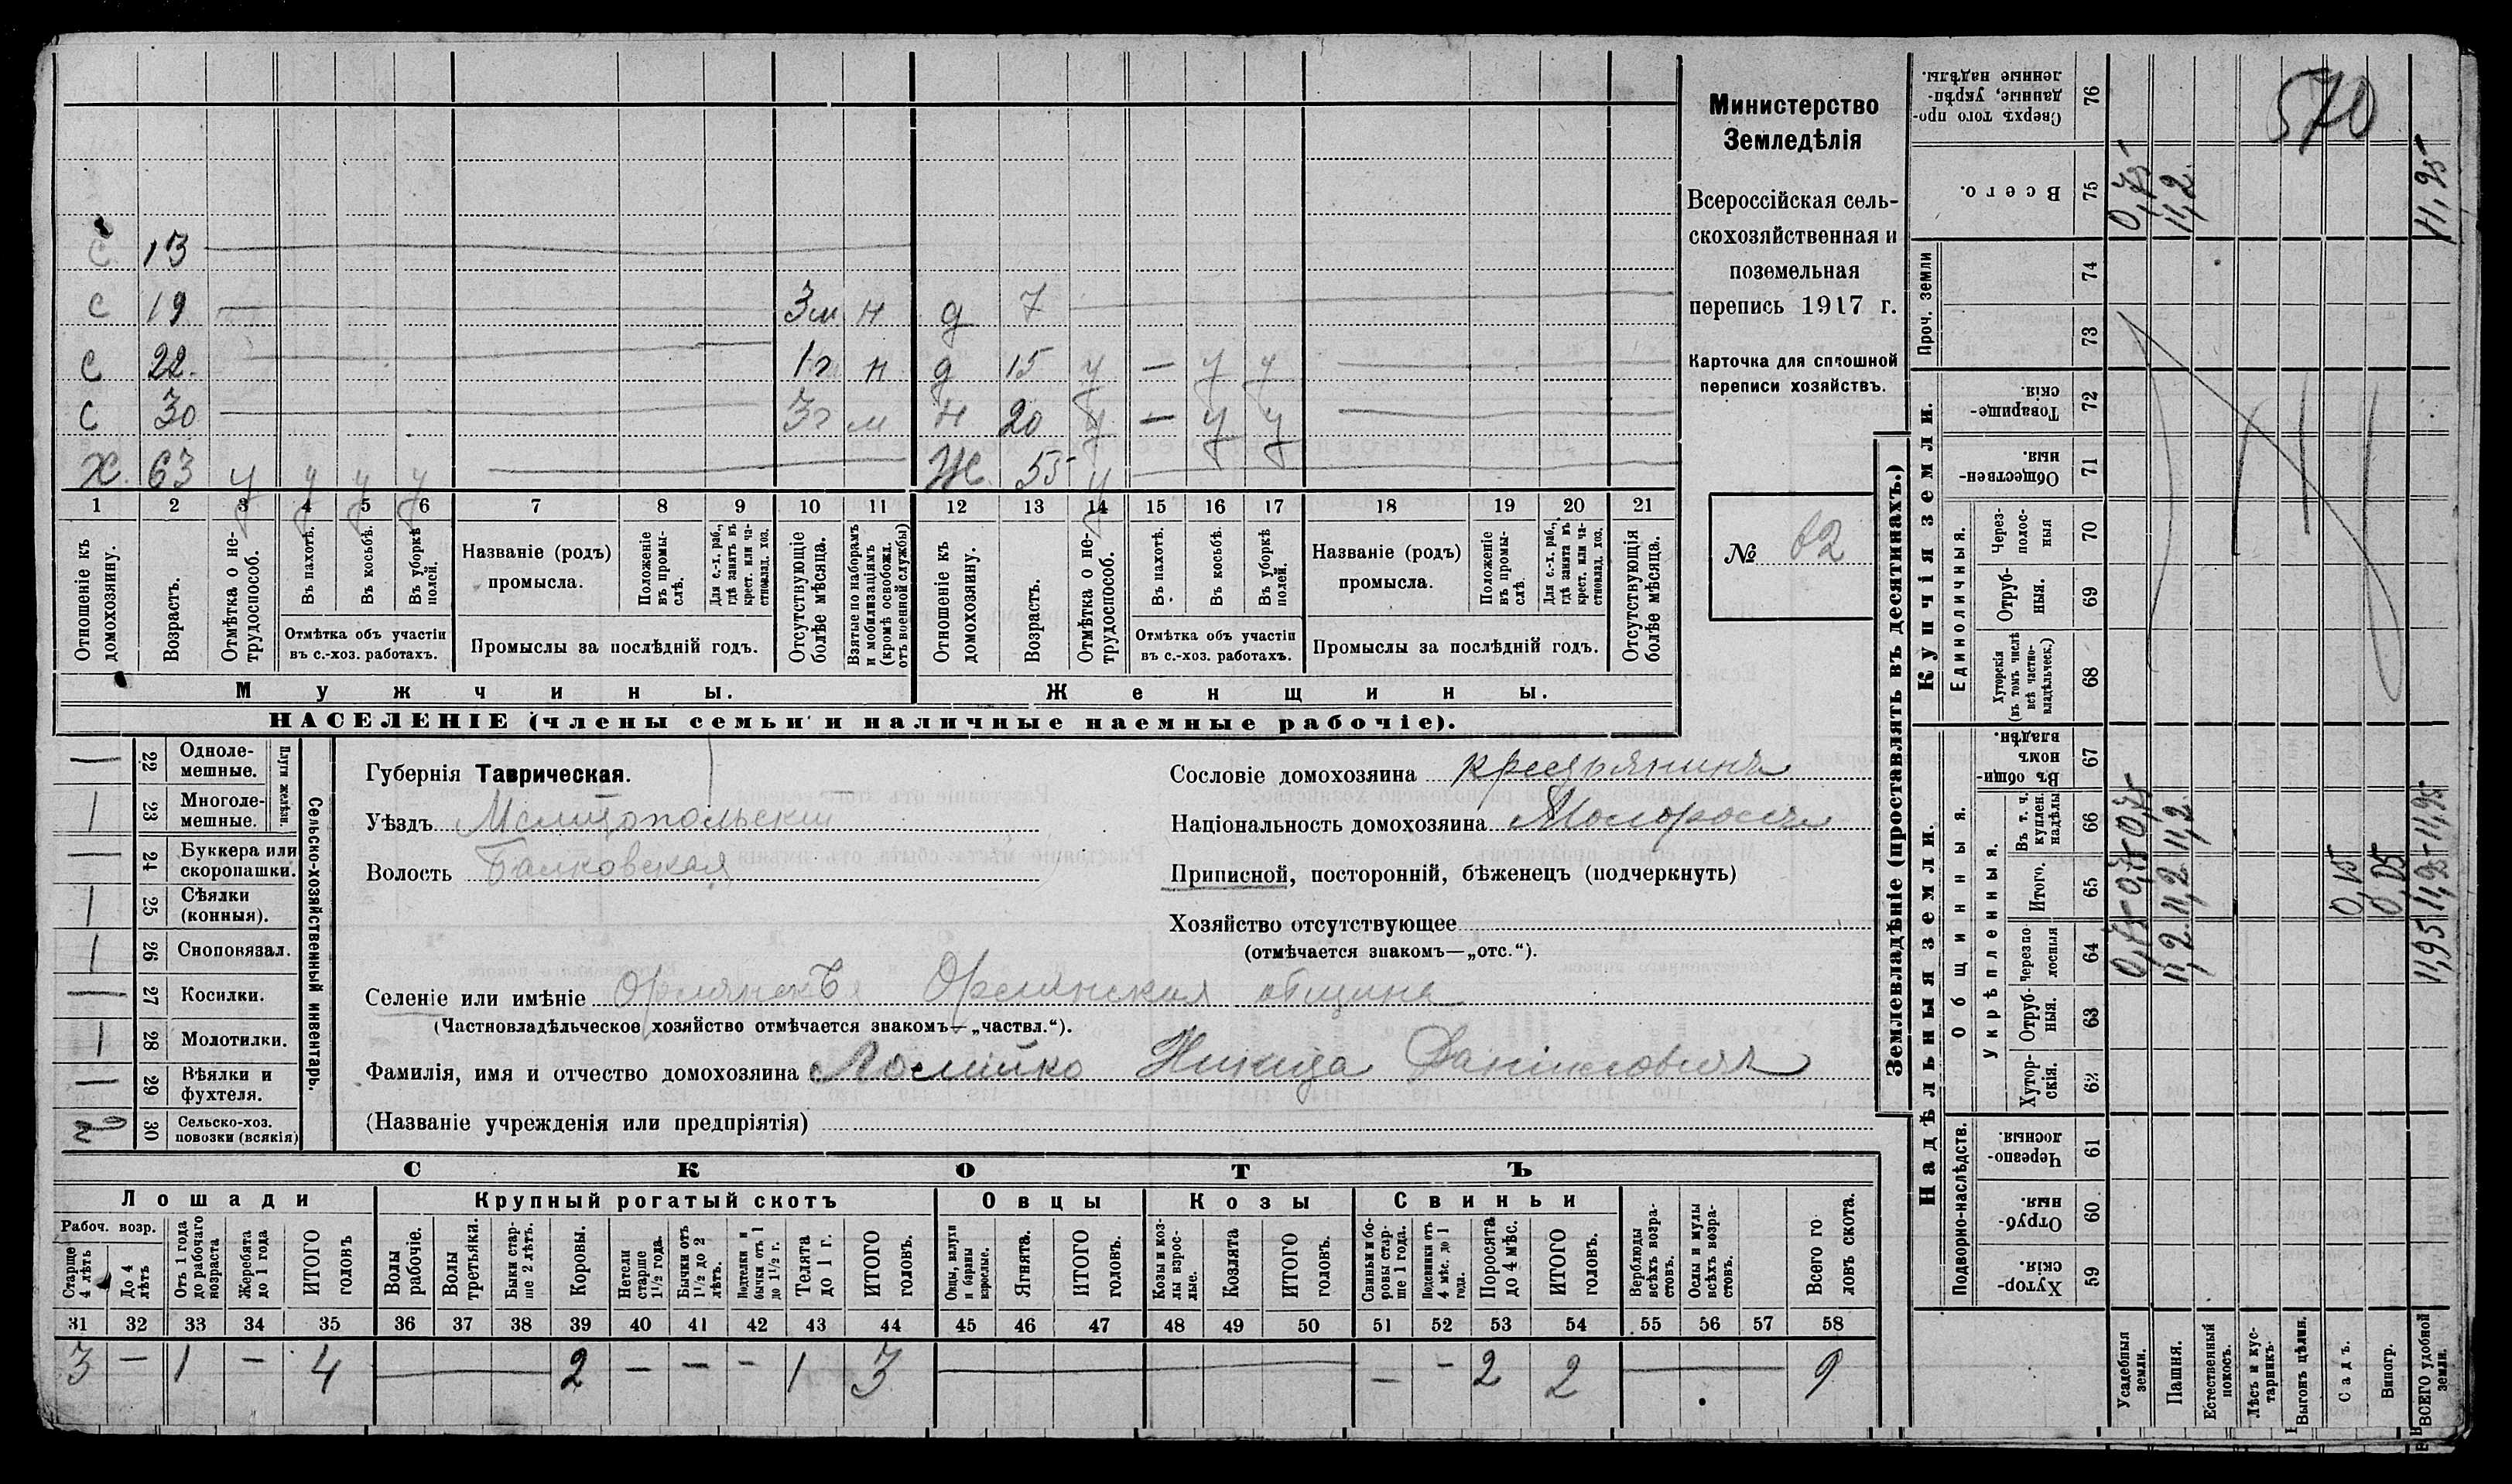 570
Министерство
Земледѣлія
Всероссійская сель-
скохозяйственная и
поземельная
перепись 1917 г.
Карточка для сплошной
переписи хозяйствъ.
№ 62
С 13
С 19 3м н д 7
С 22 1г н д 15 у — у у
С 30 3г м н 20 у — у у
Х. 63 у у у у Ж. 55 у
1 2 3 4 5 6 7 8 9 10 11 12 13 14 15 16 17 18 19 20 21
Отношеніе къ домохозяину.
Возрастъ.
Отмѣтка о не-трудоспособ.
Въ пахотѣ.
Въ косьбѣ.
Въ уборкѣ полей.
Отмѣтка объ участіи
въ с.-хоз. работахъ.
Названіе (родъ)
промысла.
Положеніе въ промы-слѣ.
Для с.-х. раб., гдѣ занятъ въ крест. или ча-стновлад. хоз.
Промыслы за послѣдній годъ.
Отсутствующіе болѣе мѣсяца.
Взятые по наборамъ и мобилизаціямъ (кромѣ освобожд. отъ военной службы)
Отношеніе къ домохозяину.
Возрастъ.
Отмѣтка о не-трудоспособ.
Въ пахотѣ.
Въ косьбѣ.
Въ уборкѣ полей.
Отмѣтка объ участіи
въ с.-хоз. работахъ.
Названіе (родъ)
промысла.
Положеніе въ промы-слѣ.
Для с.-х. раб., гдѣ занята въ крест. или ча-стновлад. хоз.
Промыслы за послѣдній годъ.
Отсутствующія болѣе мѣсяца.
Мужчины. Женщины.
НАСЕЛЕНІЕ (члены семьи и наличные наемные рабочіе).
Сельско-хозяйственный инвентарь.
Плуги желѣзн.
— 22 Одноле-мешные.
1 23 Многоле-мешные.
— 24 Буккера или скоропашки.
1 25 Сѣялки (конныя).
1 26 Сноповязал.
— 27 Косилки.
1 28 Молотилки.
— 29 Вѣялки и фухтеля.
2 30 Сельско-хоз. повозки (всякія)
Губернія Таврическая.
Уѣздъ Мелитопольскій
Волость Балковская
Сословіе домохозяина крестьянинъ
Національность домохозяина Малороссъ
Приписной, посторонній, бѣженецъ (подчеркнуть)
Хозяйство отсутствующее
(отмѣчается знакомъ—„отс.“).
Селеніе или имѣніе Орлянскъ Орлянская община
(Частновладѣльческое хозяйство отмѣчается знакомъ—„частвл.“).
Фамилія, имя и отчество домохозяина Никита Даниловичъ
(Названіе учрежденія или предпріятія)
СКОТЪ
Лошади Крупный рогатый скотъ Овцы Козы Свиньи
Рабоч. возр.
Старше 4 лѣтъ
До 4 лѣтъ
Отъ 1 года до рабочаго возраста
Жеребята до 1 года
ИТОГО головъ
Волы рабочіе.
Волы третьяки.
Быки стар-ше 2 лѣтъ.
Коровы.
Нетели старше 1½ года.
Бычки отъ 1½ до 2 лѣтъ.
Подтелки и бычки отъ 1 до 1½ г.
Телята до 1 г.
ИТОГО головъ.
Овцы, валухи и бараны взрослые.
Ягнята.
ИТОГО головъ.
Козы и коз-лы взрос-лые.
Козлята
ИТОГО головъ.
Свиньи и бо-ровы стар-ше 1 года.
Подсвинки отъ 4 мѣс. до 1 года.
Поросята до 4 мѣс.
ИТОГО головъ.
Верблюды всѣхъ возра-стовъ.
Ослы и мулы всѣхъ возра-стовъ.
Всего го ловъ скота.
31 32 33 34 35 36 37 38 39 40 41 42 43 44 45 46 47 48 49 50 51 52 53 54 55 56 57 58
3 — 1 — 4 — 2 — — — 1 3 — — — 2 2 — 9
Землевладѣніе (проставлять въ десятинахъ.)
Надѣльныя земли.
Подворно-наслѣдств.
Хутор-скія. 59
Отруб-ныя. 60
Черезпо-лосныя. 61
Общинныя.
Укрѣпленныя.
Хутор-скія. 62
Отруб-ныя. 63
Черезпо-лосныя 64
Итого. 65
Въ т. ч. куплен. надѣлы 66
Въ общи-номъ владѣн. 67
Купчія земли.
Единоличныя.
Хуторскія (въ томъ числѣ всѣ частно-владѣльческ.) 68
Отруб-ныя. 69
Через-полос-ныя 70
Обществен-ныя. 71
Товарище-скія. 72
Проч. земли
73
74
Всего. 75
Сверхъ того про-данные, укрѣп-ленные надѣлы. 76
Усадебныя земли. 0,75 0,75 0,75 0,75
Пашня. 11,2 11,2 11,2 11,2
Естественный покосъ.
Лѣсъ и кус-тарникъ.
Выгонъ цѣлин.
Садъ.
Виногр.
ВСЕГО удобной земли. 11,95 11,95 11,95 11,95